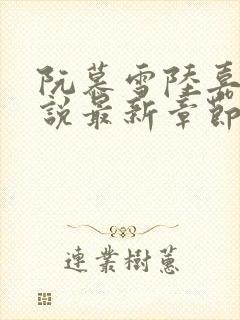 阮慕雪陸嘉
說最新章節
連業樹蔥